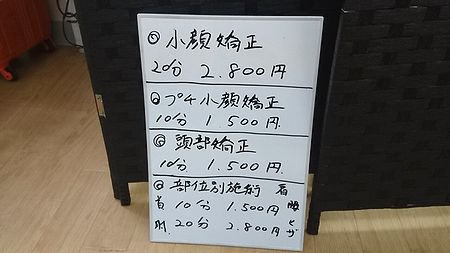 小顔矯正
20分 2.800円
プチ小顔矯正
10分 1 500円
頭部矯正
10分 1.500円.
部位別施術 肩 腰 ヒザ
首 10分 1.500円
肘. 20分 2.800円